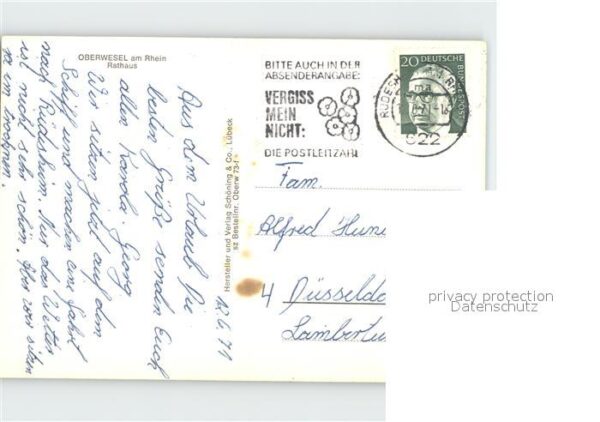 OBERWESEL am Rhein
Rathaus
12.6.71
Aus dem Urlaub die
besten Grüße senden Euch
allen Karola Georg
Wir sitzen jetzt auf dem
Schiff und machen eine Fahrt
nach Rüdesheim. Nur das Wetter
ist nicht sehr schön. Aber wir sitzen
ja im trocknen.
Hersteller und Verlag Schöning & Co., Lübeck
sz Bestellnr. Oberw 73-1
BITTE AUCH IN DER
ABSENDERANGABE:
VERGISS
MEIN
NICHT:
DIE POSTLEITZAHL
20 DEUTSCHE
BUNDESPOST
RÜDESH
622
Fam.
Alfred
4 Düsseldo
Lambertu
privacy protection
Datenschutz